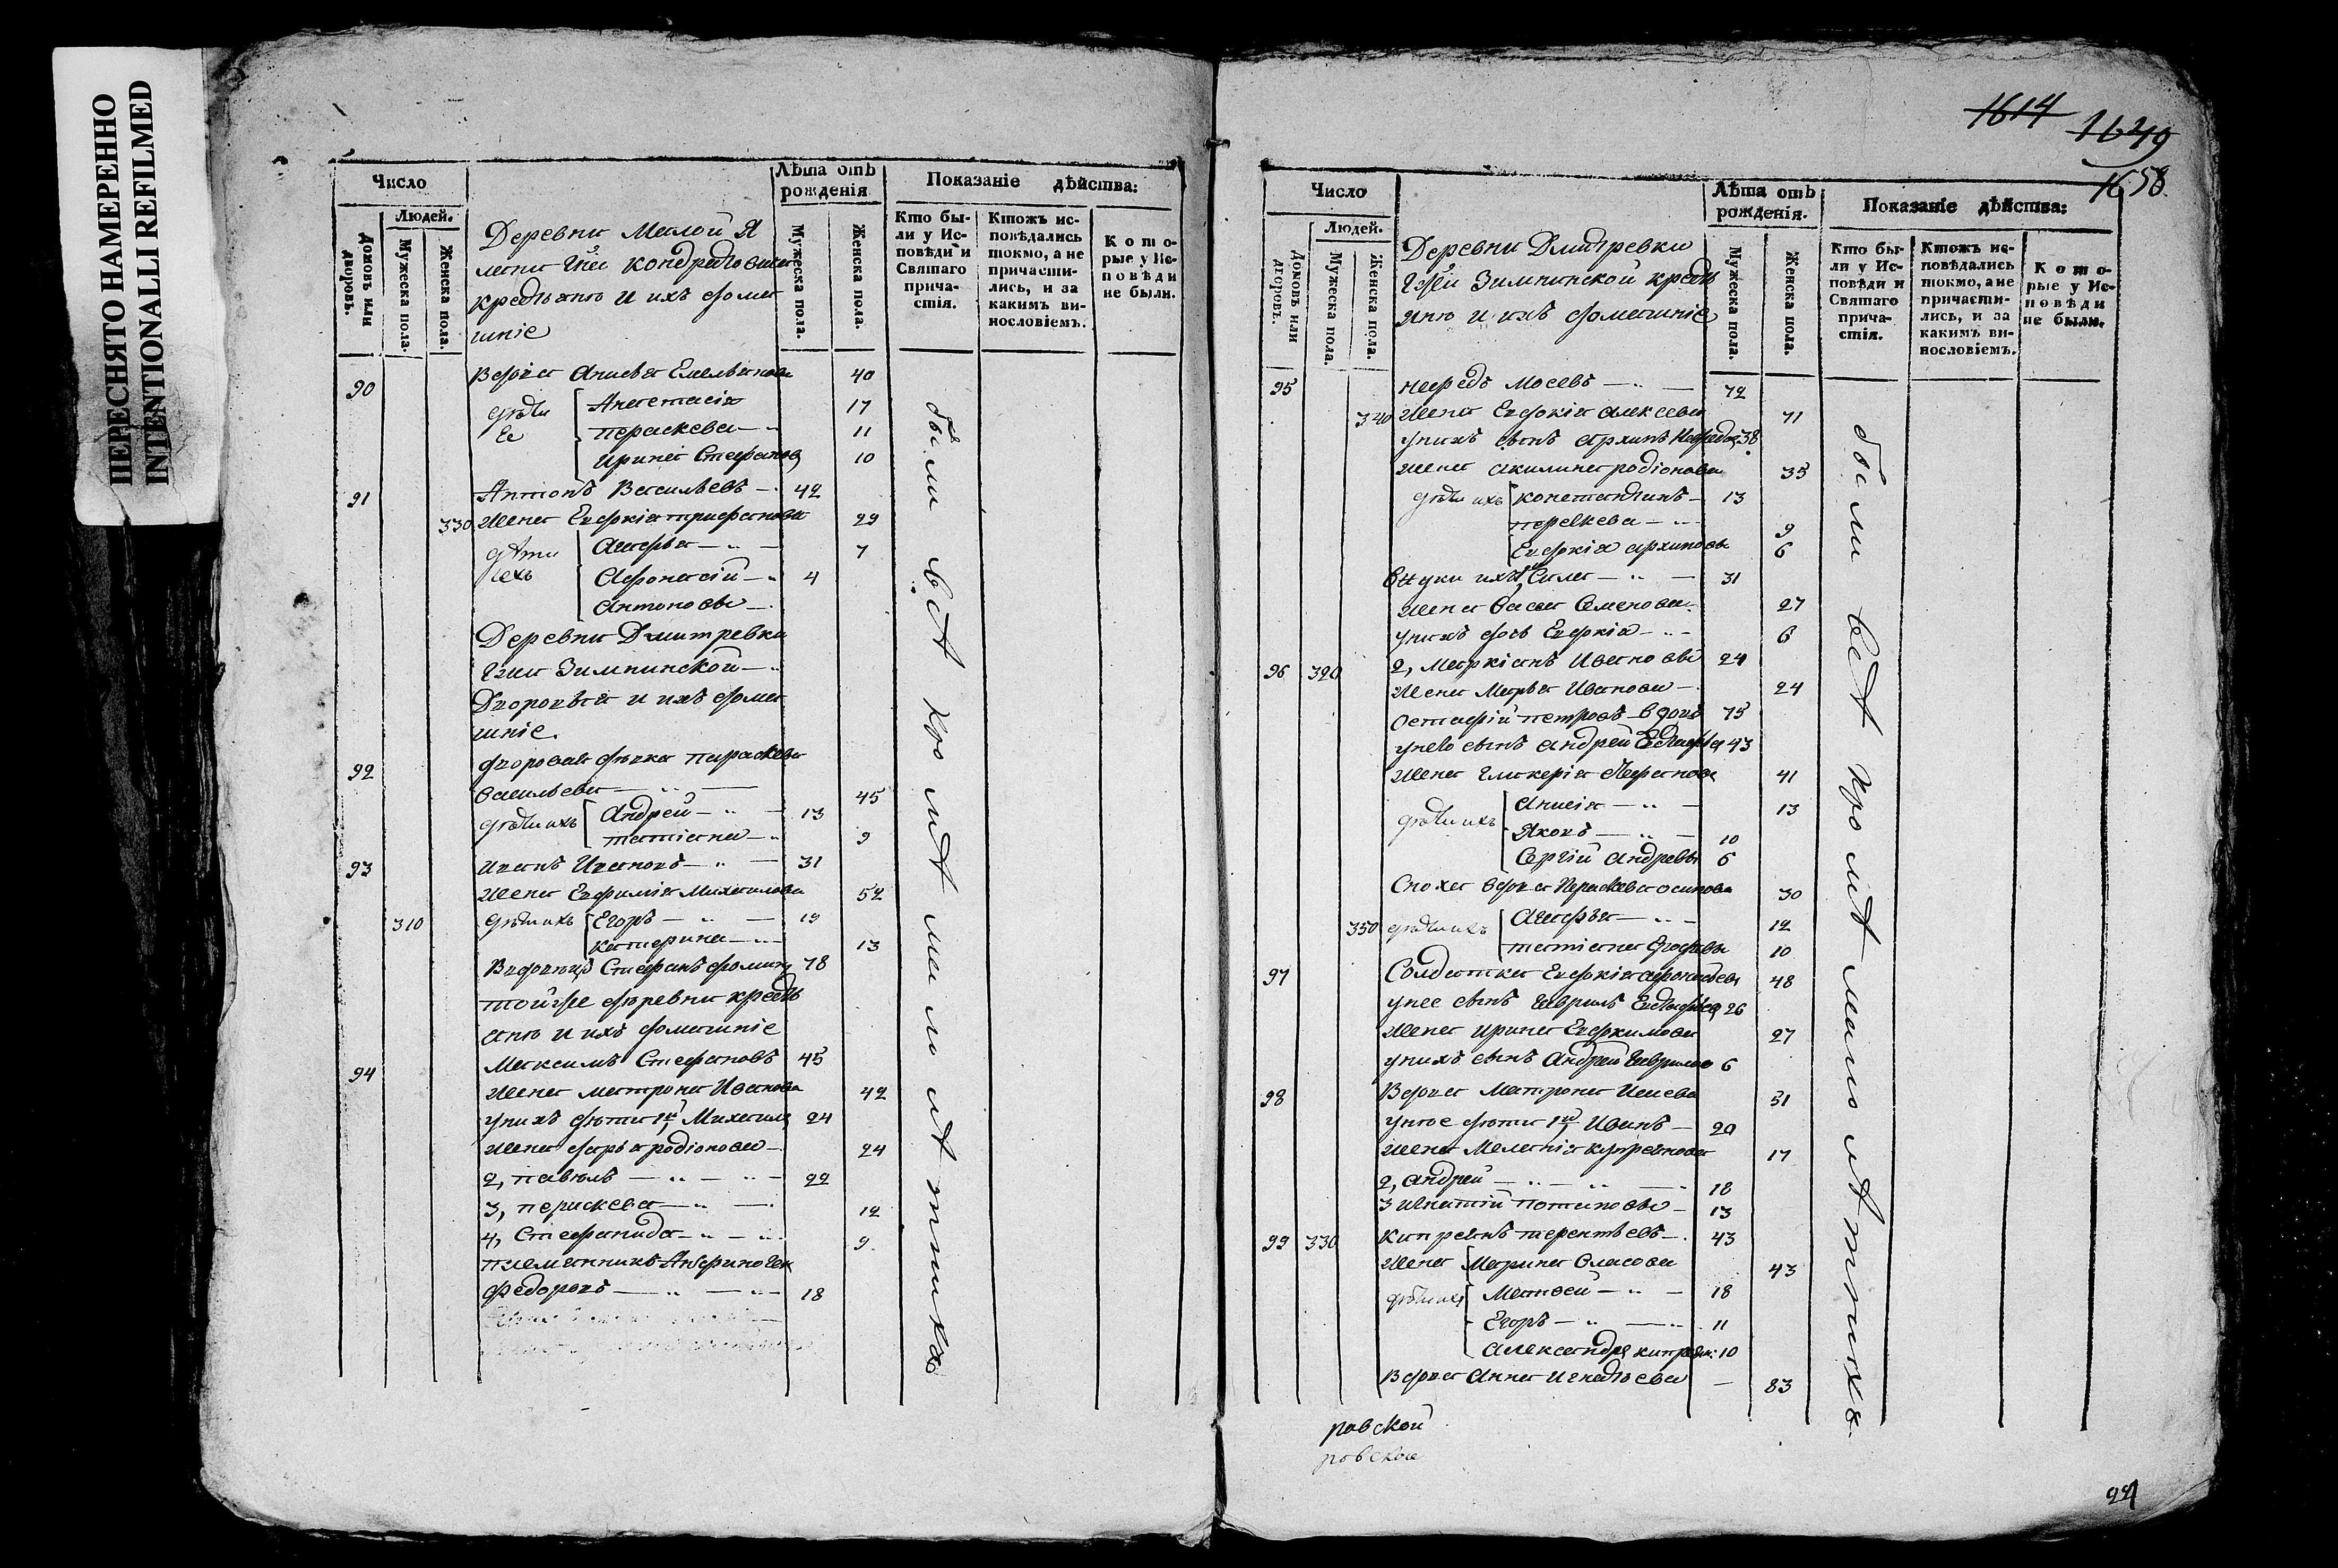 ПЕРЕСНЯТО НАМЕРЕННО
INTENTIONALLI REFILMED
Число
Людей.
Домовъ или дворовъ.
Мужеска пола.
Женска пола.
Лѣта отъ рожденія
Мужеска пола.
Женска пола.
Показаніе дѣйства:
Кто бы-
ли у Ис-
повѣди и
Святаго
прича-
стія.
Ктожъ ис-
повѣдались
токмо, а не
причасти-
лись, и за
какимъ ви-
нословіемъ.
Кото-
рые у Ис-
повѣди
не были.
Деревни Малой
кондратовича
и ихъ дома
шніе
90 Вдова Анисья Емельянова 40
дѣти Анастасія 17
Ее пераскева 11
ирина Стефанов 10
91 Антонъ Васильевъ 42
330 жена Евдокія трифанова 29
дѣти Агафья 7
ихъ Афонасій 4
Антоновы
Деревни Дмитревки
Зимнинской
Дворовыя и ихъ дома
шніе.
92 дворовая дѣвка параскева
васильева 45
дѣти ихъ Андрей 13
татіана 9
93 иванъ Ивановъ 31
жена Евфимія Михаилова 52
310 дѣти ихъ Егоръ 19
катерина 13
Стефанъ фомин 78
тойже деревни кресть
яне и ихъ домашніе
94 Максимъ Стефановъ 45
жена матрона Иванова 42
унихъ дѣти 1й Михаил 24
жена дарья родіонова 24
2, павелъ 22
3, пераскева 12
4, Стефанида 9
племянникъ Анфиноген
Федоровъ 18
были всѣ кромѣ малолѣтныхъ
1614
1649
1658.
Число
Людей.
Домовъ или дворовъ.
Мужеска пола.
Женска пола.
Лѣта отъ рожденія.
Мужеска пола.
Женска пола.
Показаніе дѣйства:
Кто бы-
ли у Ис-
повѣди и
Святаго
прича-
стія.
Ктожъ ис-
повѣдались
токмо, а не
причасти-
лись, и за
какимъ ви-
нословіемъ.
Кото-
рые у Ис-
повѣди
не были.
Деревни Дмитревки
Зимнинской кресть
яне и ихъ домашніе
95 нефедъ Мосевъ 72
340 жена Евдокія алексева 71
унихъ сынъ архипъ Нефедов 38
жена акилина родіонова 35
дѣти ихъ констандинъ 13
9
Евдокія архиповы 6
внуки ихъ 1й Сила 31
жена Васса Семенова 27
унихъ дочь Евдокія 6
96 320 2, Маркіанъ Ивановы 24
жена Марья Иванова 24
остафій петровъ вдовъ 75
унево сынъ андрей Евстафьев 43
жена гликерія Стефанова 41
дѣти ихъ Анисія 13
Яковъ 10
Сергій андреевы 6
Сноха вдова Пераскева осипова 30
350 дѣти ихъ Агафья 12
татіана 10
97 Солдатка Евдокія 48
унее сынъ гаврилъ Евстафьев 26
жена ирина Евдокимова 27
унихъ сынъ Андрей гаврилов 6
98 Вдова Матрона Исаева 51
унее дѣти 1й Иванъ 20
жена Меланія купреянова 17
2, андрей 18
3 игнатій потаповы 13
99 330 кипреянъ терентьевъ 43
жена Марина власова 43
дѣти ихъ Матвей 18
Егоръ 11
александр кипреян: 10
Вдова анна игнатьева 83
были всѣ кромѣ малолѣтныхъ
ровской
ровской